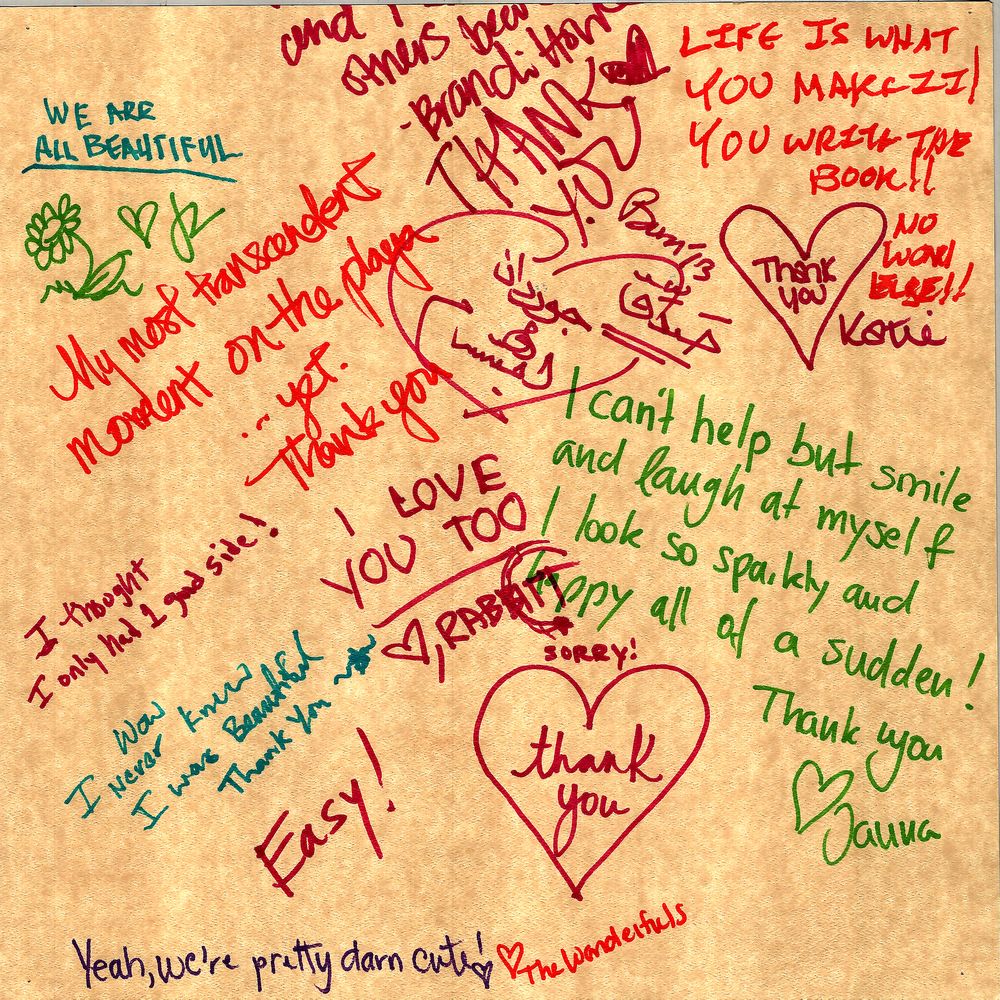 and I
others bea
- Brandi Hon
THANK
YOU
LIFE IS WHAT
YOU MAKE IT!
YOU WRITE THE
BOOK!!
NO
WON!
ELSE!!
WE ARE
ALL BEAUTIFUL
Thank
you
Katie
My most transcendent
moment on the playa
... yet.
Thank you
I can't help but smile
and laugh at myself
I look so sparkly and
happy all of a sudden!
Thank you
Janna
I LOVE
YOU TOO
, RABBIT!
SORRY!
I thought
I only had 1 good side!
Wow
I Never knew
I was Beautiful
Thank You
thank
you
Easy!
Yeah, we're pretty darn cute!
The Wonderfuls